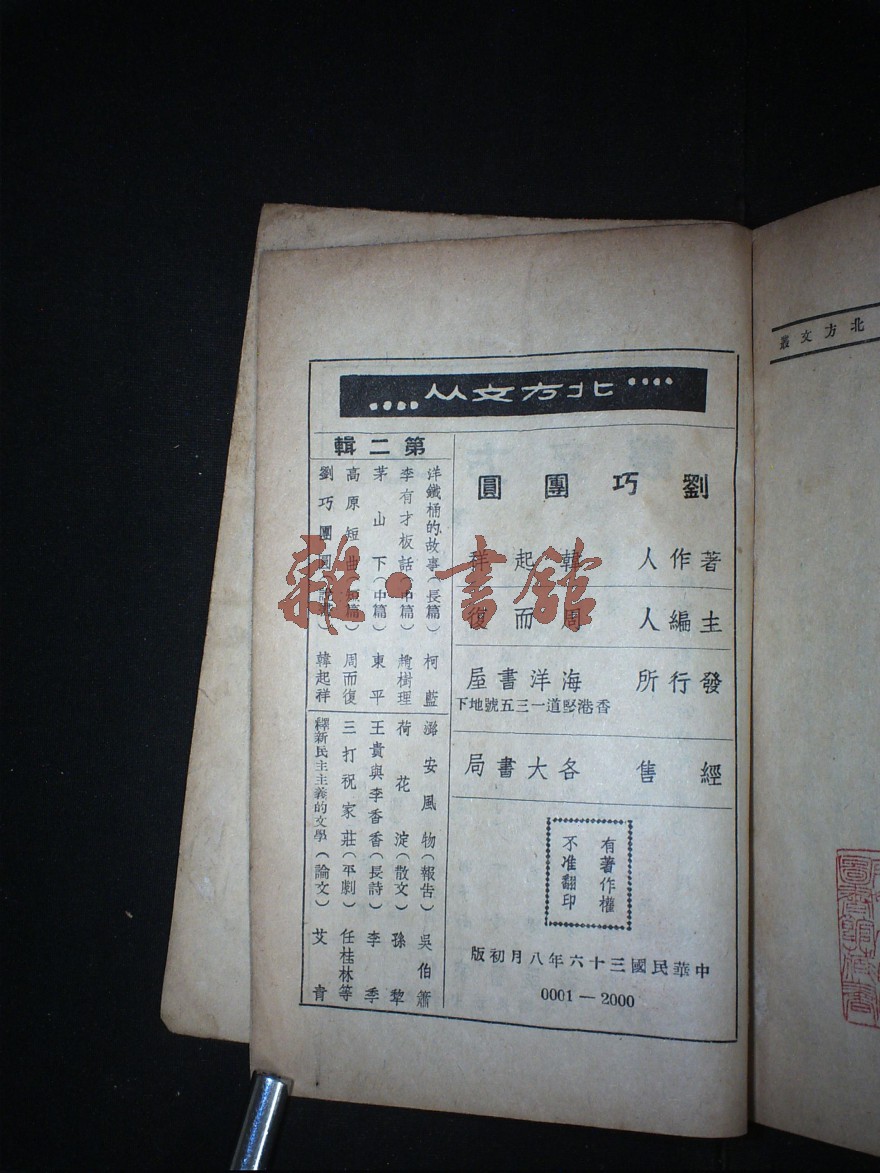 北方文叢
北方文从
劉巧團圓
著作人 韓起群
主編人 周而復
發行所 海洋書屋
香港堅道一三五號地下
經售 各大書局
有著作權
不准翻印
中華民國三十六年八月初版
0001—2000
第二輯
洋鐵桶的故事(長篇) 柯藍
李有才板話(中篇) 趙樹理
茅山下(中篇) 東平
高原短曲(短篇) 周而復
劉巧團圓(說書) 韓起祥
潞安風物(報告) 吳伯簫
荷花淀(散文) 孫犁
王貴與李香香(長詩) 李季
三打祝家莊(平劇) 任桂林等
釋新民主主義的文學(論文) 艾青
雜·書館